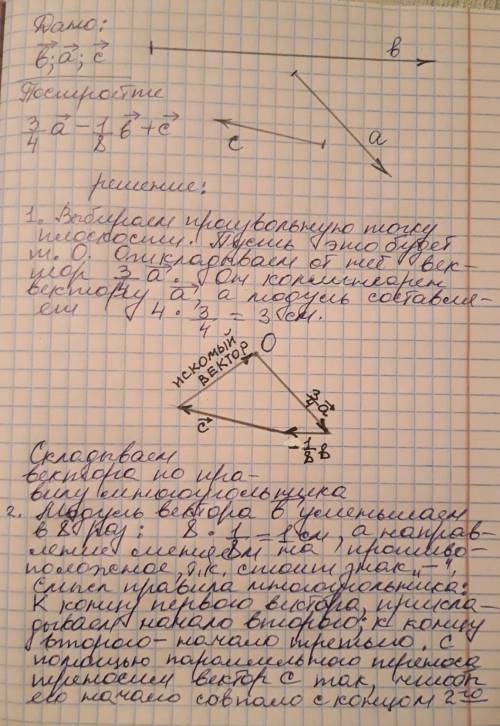 Дано:
b⃗; a⃗; c⃗
b
Постройте
a
3/4 a⃗ - 1/8 b⃗ + c⃗
c
решение:
1. Выбираем произвольную точку
плоскости. Пусть это будет
т. О. Откладываем от неё век-
тор 3/4 a⃗. Он коллинеарен
вектору a⃗, а модуль составля-
ет 4 · 3/4 = 3 см.
О
искомый
вектор
3/4 a⃗
c⃗
- 1/8 b
Складываем
вектора по пра-
вилу многоугольника
2. Модуль вектора b уменьшаем
в 8 раз: 8 · 1/8 = 1 см, а направ-
ление меняем на противо-
положное, т.к. стоит знак „-“,
смысл правила многоугольника:
К концу первого вектора, прикла-
дываем начало второго; к концу
второго- начало третьего. С
помощью параллельного переноса
переносим вектор c так, чтобы
его начало совпало с концом 2го